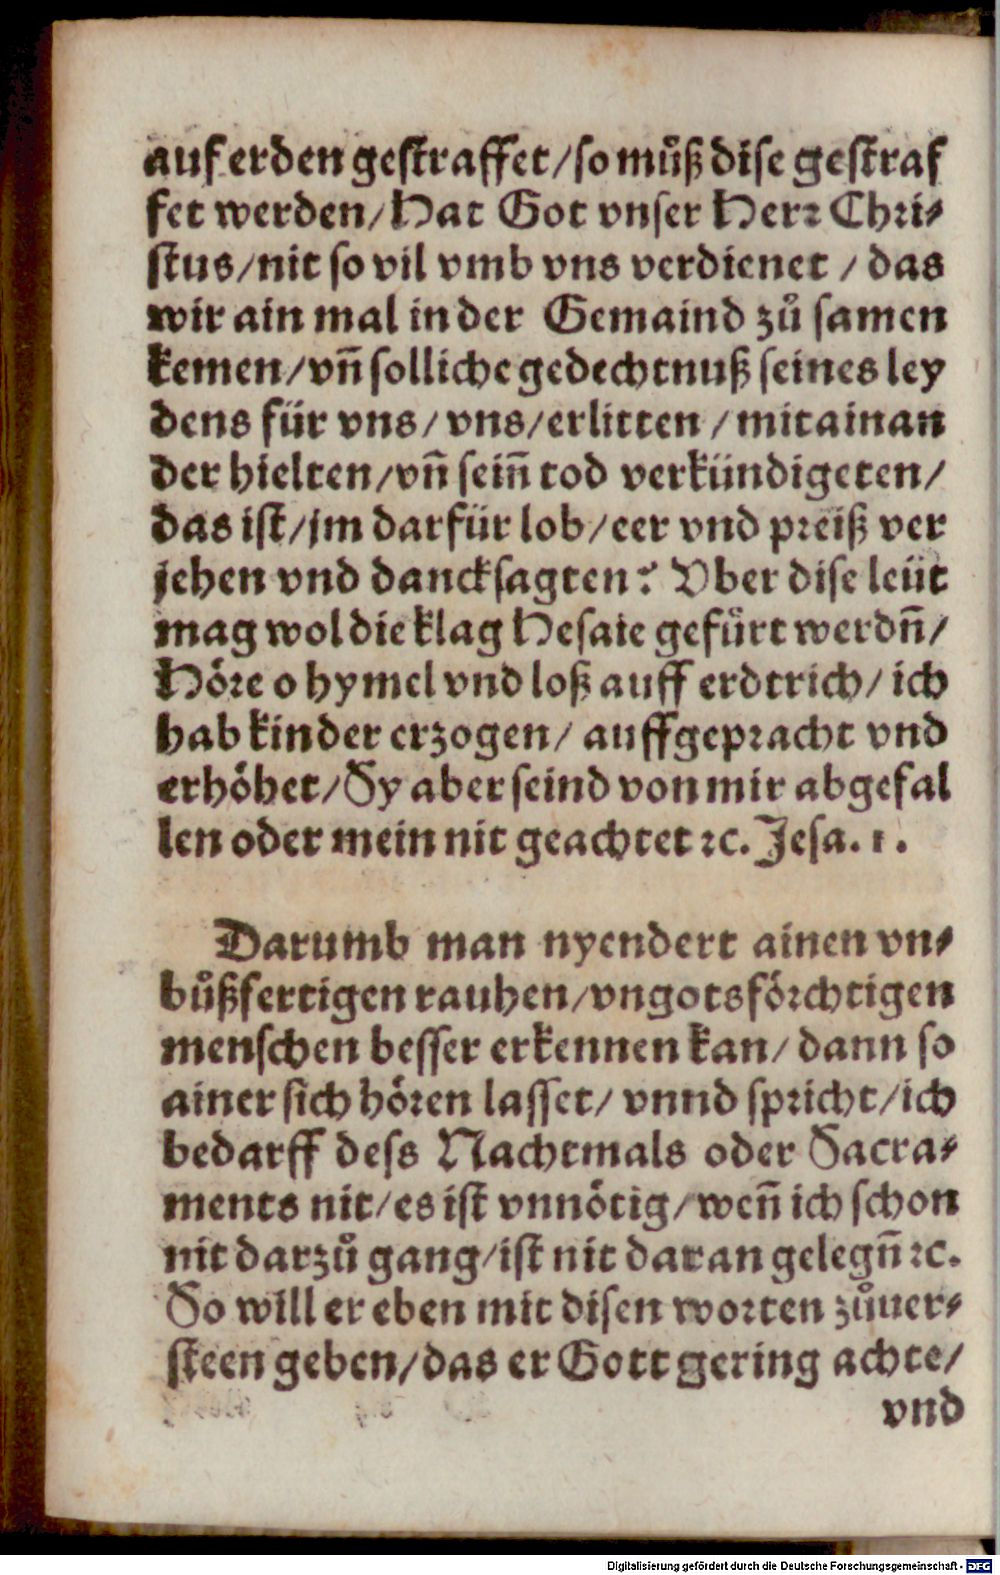 auf erden gestraffet/so můß dise gestraf
fet werden/Hat Got vnser Herr Chri-
stus/nit so vil vmb vns verdienet / das
wir ain mal in der Gemaind zů samen
kemen/vñ solliche gedechtnuß seines ley
dens für vns/vns/erlitten / mit ainan
der hielten/vñ sein̄ tod verkündigeten/
das ist/jm darfür lob/eer vnd preiß ver
jehen vnd dancksagten? Vber dise leüt
mag wol die klag Hesaie gefürt werdn̄/
Höre o hymel vnd loß auff erdtrich/ ich
hab kinder erzogen/ auffgepracht vnd
erhöhet/Sy aber seind von mir abgefal
len oder mein nit geachtet ꝛc. Jesa. 1.
Darumb man nyendert ainen vn-
bůßfertigen rauhen/vngotsförchtigen
menschen besser erkennen kan/ dann so
ainer sich hören lasset/ vnnd spricht/ich
bedarff dess Nachtmals oder Sacra-
ments nit/es ist vnnötig/wen̄ ich schon
nit darzů gang/ist nit daran gelegn̄ ꝛc.
So will er eben mit disen worten zůuer-
steen geben/das er Gott gering achte/
vnd
Digitalisierung gefördert durch die Deutsche Forschungsgemeinschaft - DFG